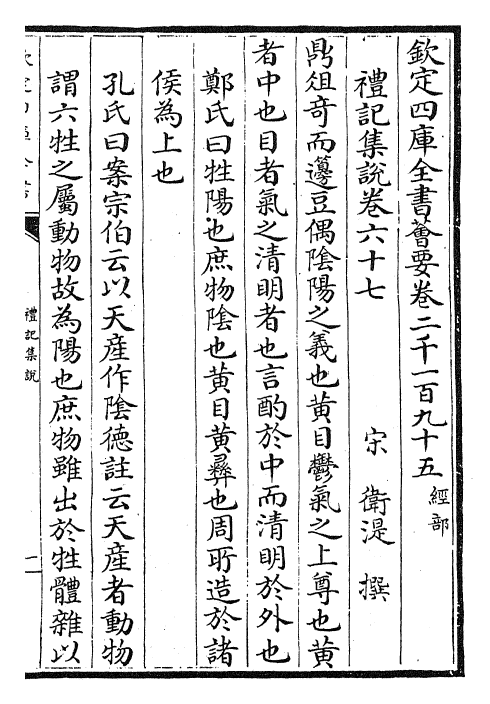 欽定四庫全書薈要卷二千一百九十五 經部
禮記集說卷六十七
宋 衛湜 撰
鼎俎竒而籩豆偶隂陽之義也黄目鬱氣之上尊也黄
者中也目者氣之清明者也言酌於中而清明於外也
鄭氏曰牲陽也庶物隂也黄目黄彞也周所造於諸
侯為上也
孔氏曰案宗伯云以天産作隂德註云天産者動物
謂六牲之屬動物故為陽也庶物雖出於牲體雜以
禮記集說
一